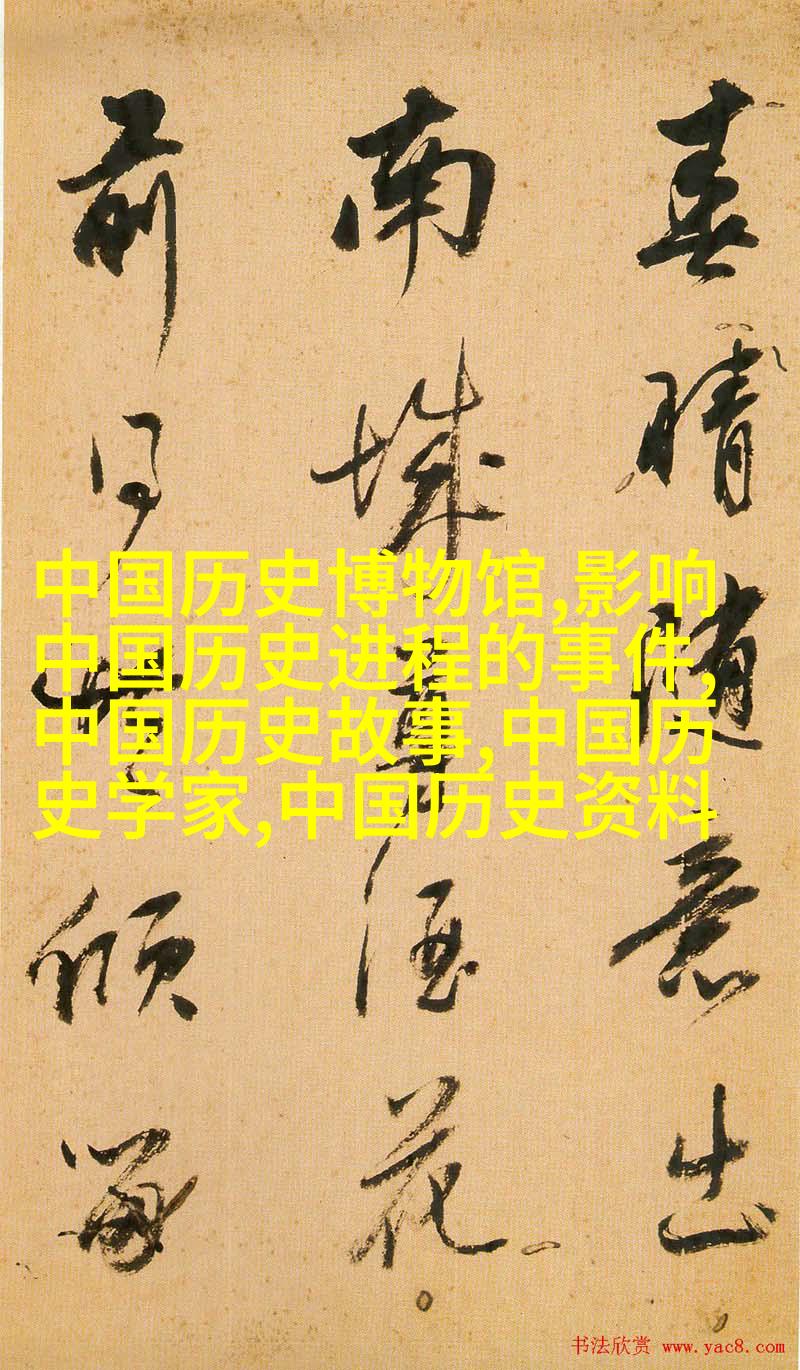 春晴随意出
南城尊酒花
前得共倾留
中国历史博物馆,影响
中国历史进程的事件,
中国历史故事,中国历
史学家,中国历史资料
书法欣赏 www.yac8.com